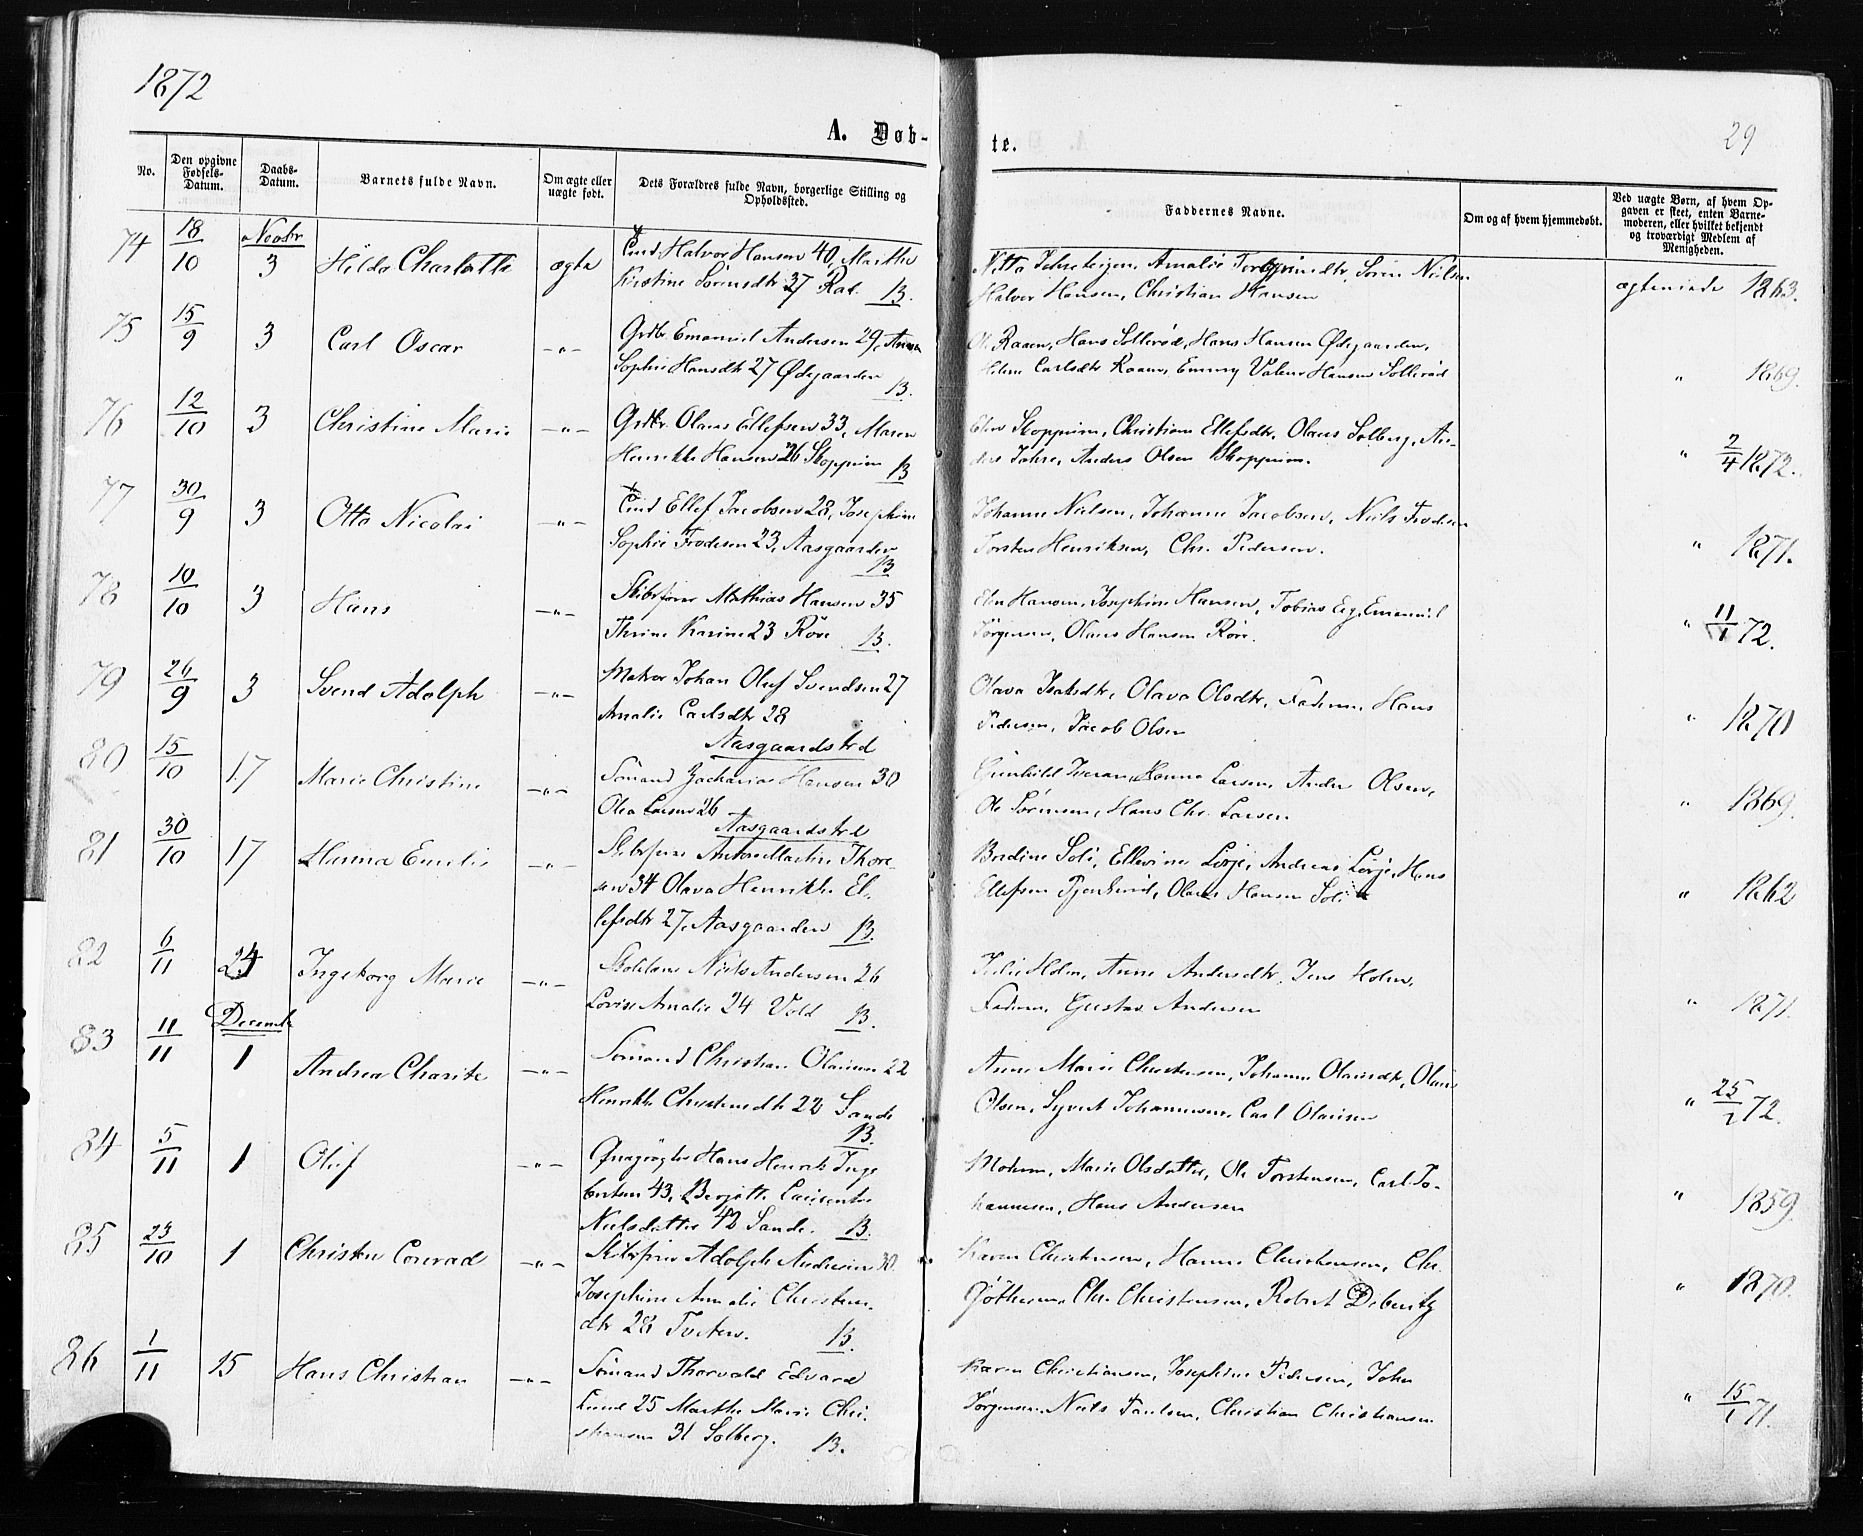 1872
A. Døb-
te.
29
No.
Den opgivne Fødsels-Datum.
Daabs-Datum.
Barnets fulde Navn.
Om ægte eller uægte født.
Dets Forældres fulde Navn, borgerlige Stilling og Opholdssted.
Faddernes Navne.
Om og af hvem hjemmedøbt.
Ved uægte Børn, af hvem Op-
gaven er skeet, enten Barne-
moderen, eller hvilket bekjendt
og troværdigt Medlem af
Menigheden.
74 18/10 Novbr 3 Hilda Charlotte ægte Halvor Hansen 40, Marthe
Kirstine Sørensdtr 37 Røl. B.
Amalie Søren Nielsen
Halvor Hansen, Christian Hansen
1863.
75 15/9 3 Carl Oscar -"- Grdbr Emanuel Andersen 29, Anna
Sophie Hansdtr 27 Ødegaarden B.
Raaen, Hans Sollerød, Hans Hansen Ødegaarden,
Carlsdtr Raaen, Emmy Hansen Sollerød
" 1869.
76 12/10 3 Christine Marie -"- Grdbr. Olaus Ellefsen 33, Maren
Henrikke Hansen 26 Skoppum B
Skoppum, Christiane Ellefsdtr, Olaus Solberg, An-
Anders Olsen Skoppum.
" 2/4 1872.
77 30/9 3 Otto Nicolai -"- Ellef Jacobsen 28, Josephine
Sophie Frodesen 23, Aasgaarden
B
Johanne Nielsen, Johanne Jacobsen, Niels Frodesen
Torsten Henriksen, Chr. Pedersen.
" 1871.
78 10/10 3 Hans -"- Skibsfører Mathias Hansen 35
Thrine Karine 23 Røre B.
Elen Hansen, Josephine Hansen, Tobias Eeg, Emanuel
Jørgensen, Olaus Hansen Røre.
" 11/1 72.
79 26/9 3 Svend Adolph -"- Matros Johan Oluf Svendsen 27
Amalie Carlsdtr 28
Aasgaardstrd
Olava Isaksdtr, Olava Olsdtr, Faderen, Hans
Pedersen, Jacob Olsen
" 1870
80 15/10 17 Marie Christine -"- Sømand Zacharias Hansen 30
Olea Larsen 26
Aasgaardstrd
Gunhild Iversen, Hanna Larsen, Anders Olsen,
Ole Sørensen, Hans Chr. Larsen
" 1869.
81 30/10 17 Hanna Emilie -"- Skibsfører Anton Martin Thore-
sen 34 Olava Henrikke El-
lefsdtr 27, Aasgaarden B.
Berdine Soli, Ellevine Lørje, Andreas Lørje, Hans
Ellefsen Olaus Hansen Soli
" 1862
82 6/11 24 Ingeborg Marie -"- Niels Andersen 26
Lovise Amalie 24 Vold B.
Julie Holm, Anne Andersdtr, Jens Holm,
Faderen, Gustav Andersen
" 1871.
83 11/11 Decembr 1 Andrea Charite -"- Sømand Christian Olausen 22
Henrikke Christensdtr 22 Sande
B.
Anne Marie Christensen, Johanne Olausdtr, Olaus
Olsen, Syvert Johannesen, Carl Olausen
" 25/1 72.
84 5/11 1 Oluf -"- Qvægrøgter Hans Henrik Inge
bretsen 43, Bergitte Laurentse
Nielsdatter 42 Sande. B.
Moderen, Marie Olsdatter, Ole Torstensen, Carl Jo-
hannesen, Hans Andersen
" 1859.
85 23/10 1 Christen Conrad -"- Skibsfører Adolph Andersen 30.
Josephine Amalie Christens-
dtr 28 Tveten. B.
Karen Christensen, Hanne Christensen, Chr.
Gøthesen, Chr. Christensen, Robert Deberitz
" 1870.
86 1/11 15 Hans Christian -"- Sømand Thorvald Edvard
Lund 25 Marthe Marie Chri-
stiansen 31 Solberg. B.
Karen Christiansen, Josephine Pedersen, John
Jørgensen, Niels Paulsen, Christian Christiansen
" 15/1 71.